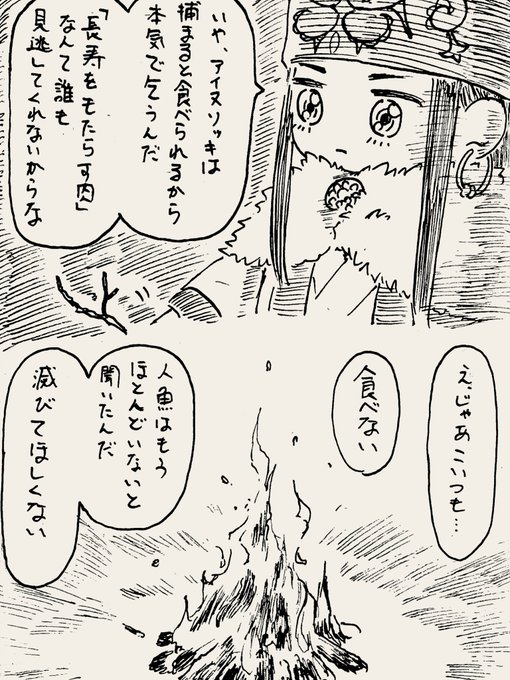 いや、アイヌソッキは
捕まると食べられるから
本気で乞うんだ
「長寿をもたらす肉」
なんて誰も
見逃してくれないからな
え、じゃあこいつも…
食べない
人魚はもう
ほとんどいないと
聞いたんだ
滅びてほしくない